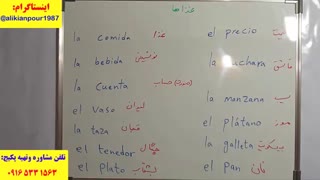 اینستاگرام:
@alikianpour1987
غذاها
la comida غذا
la bebida نوشیدنی
la cuenta صورت حساب
el vaso لیوان
la taza فنجان
el tenedor چنگال
el plato بشقاب
el precio قیمت
la cuchara قاشق
la manzana سیب
el plátano موز
la galleta بیسکویت
el pan نان
تلفن مشاوره وتهیه پکیج:
۰۹۱۶ ۵۳۳ ۱۵۶۳